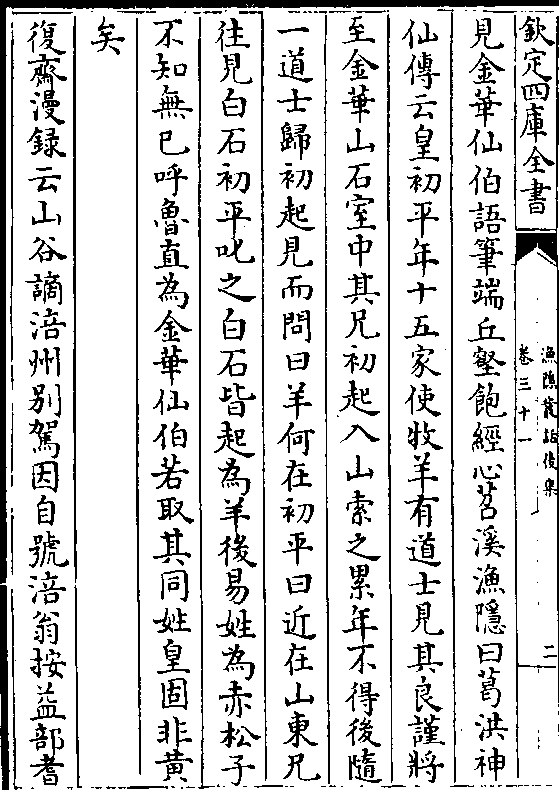 欽定四庫全書
漁隱叢話後集
卷三十一
二
見金華仙伯語筆端丘壑飽經心苕溪漁隱曰葛洪神
仙傳云皇初平年十五家使牧羊有道士見其良謹將
至金華山石室中其兄初起入山索之累年不得後隨
一道士歸初起見而問曰羊何在初平曰近在山東兄
往見白石初平叱之白石皆起為羊後易姓為赤松子
不知無已呼魯直為金華仙伯若取其同姓皇固非黄
矣
復齋漫録云山谷謫涪州别駕因自號涪翁按益部耆